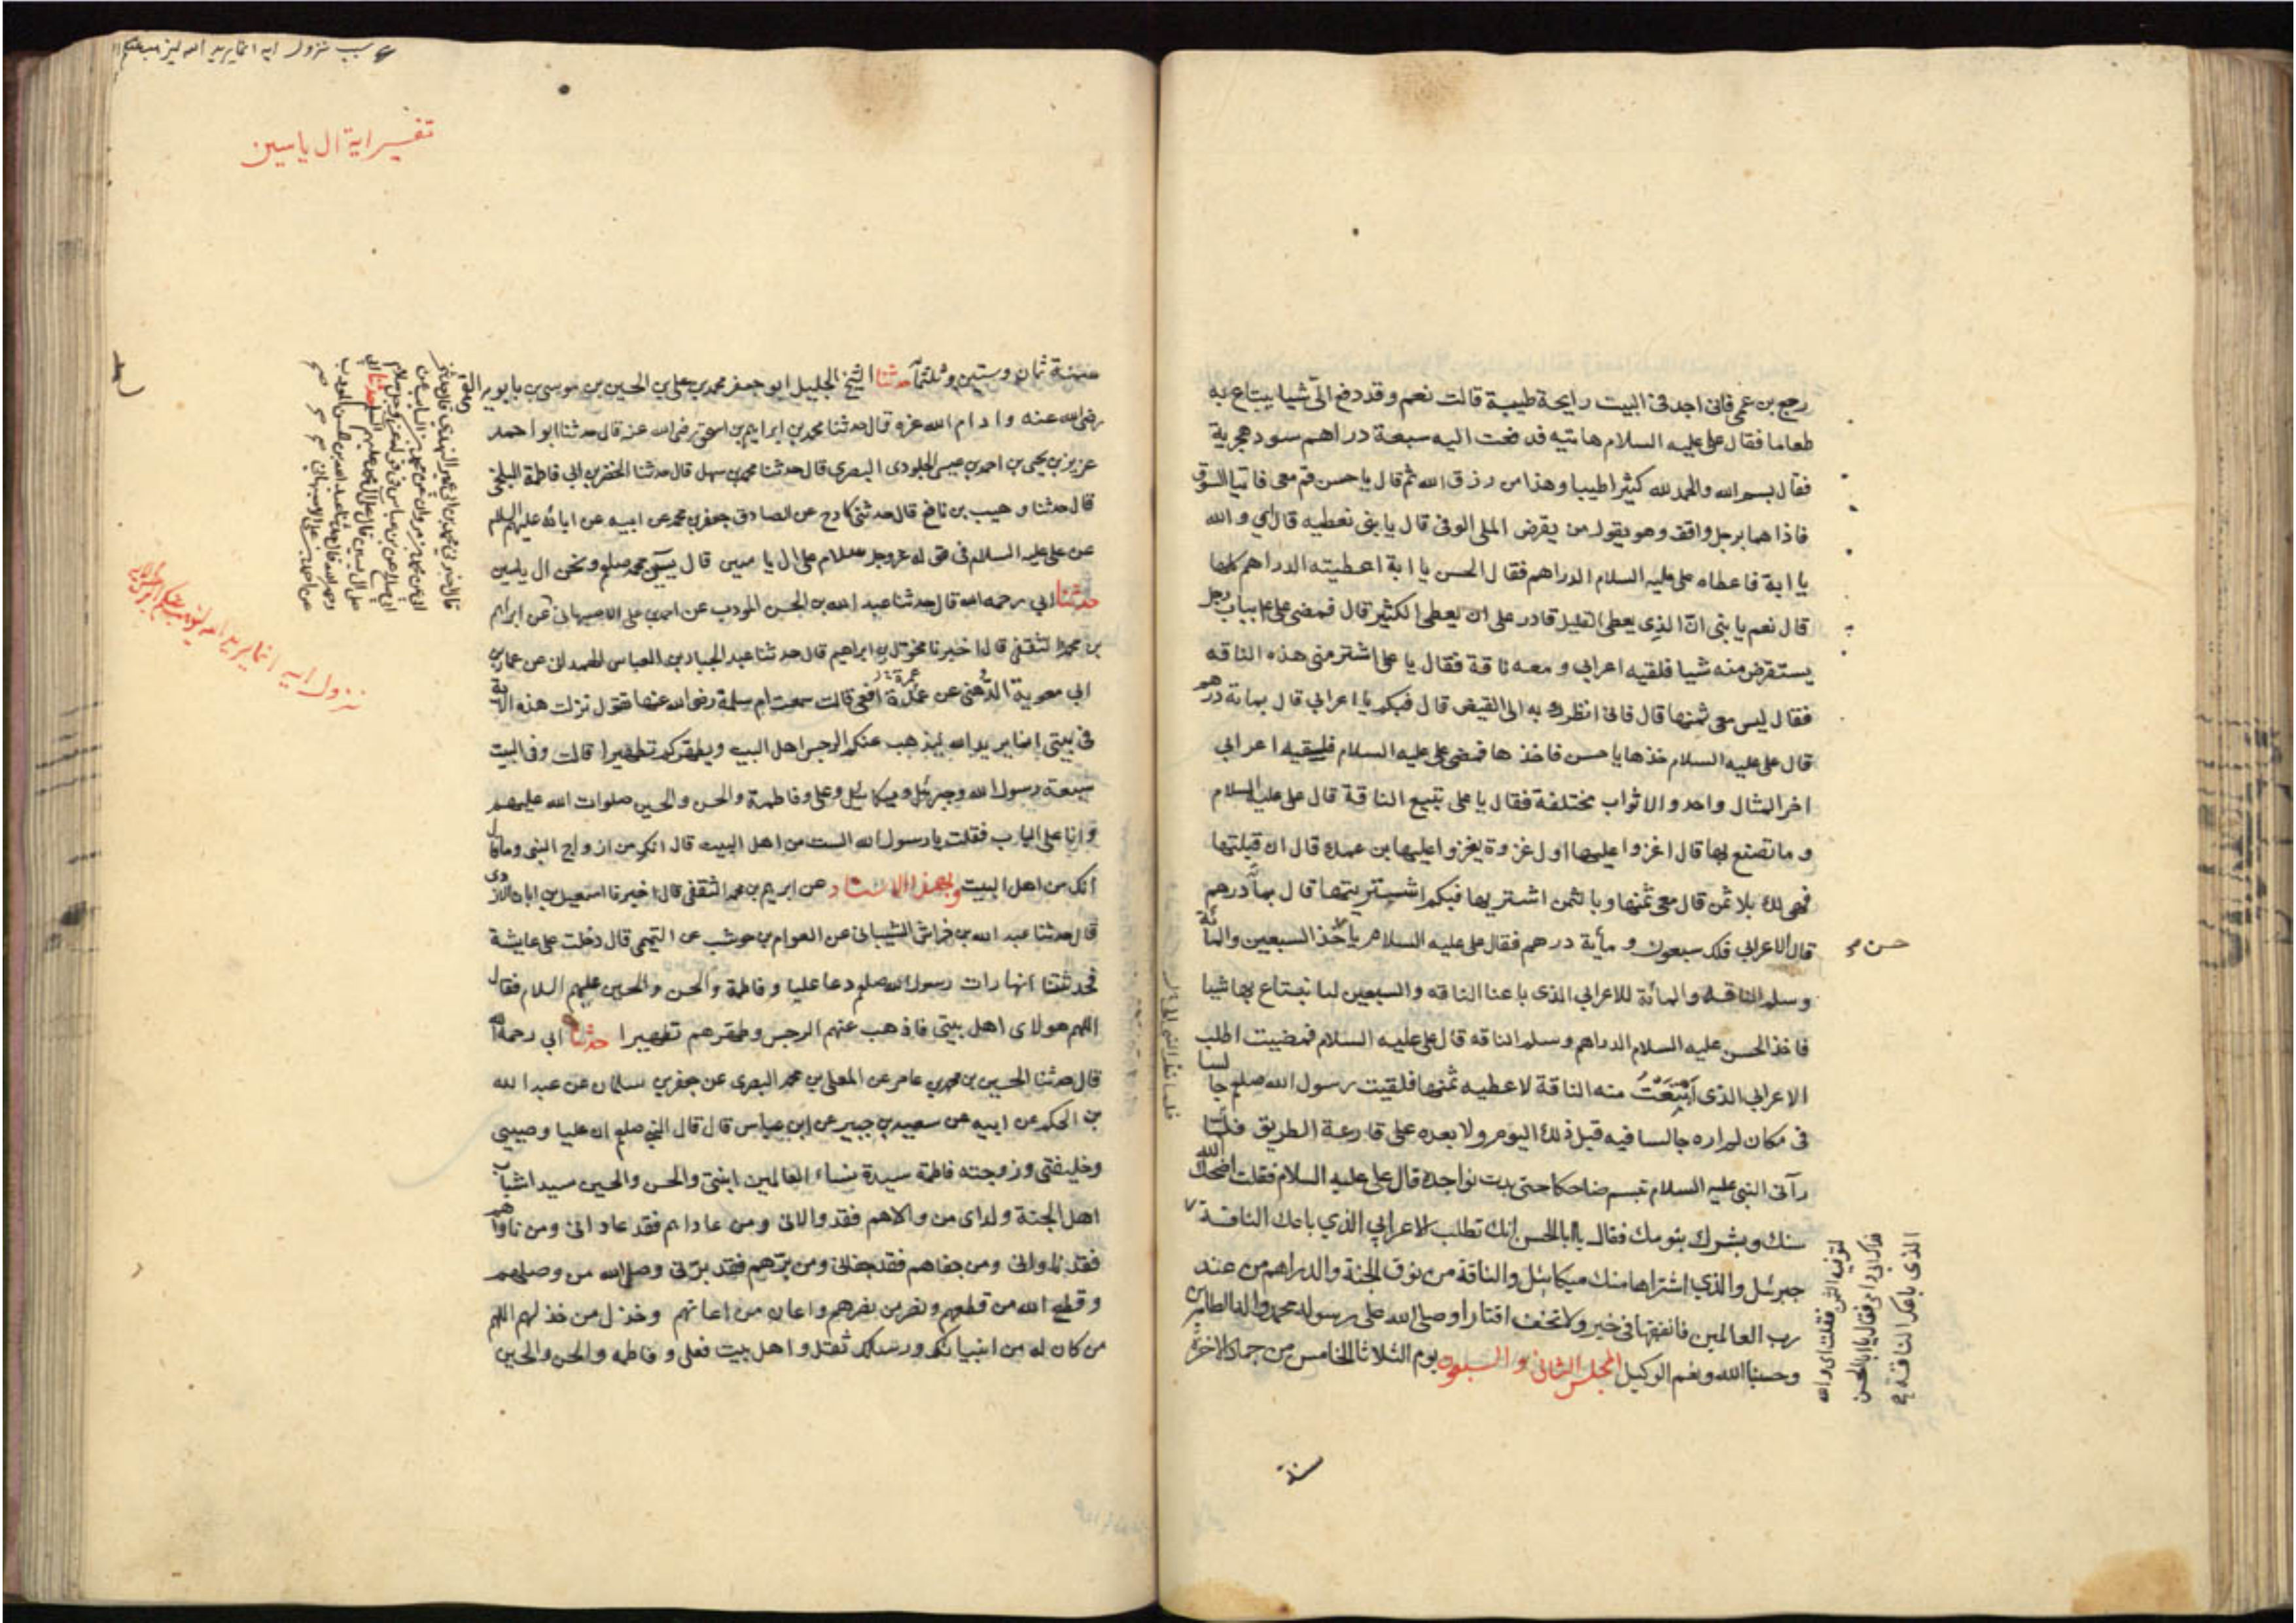 رجع بن عمى فانى اجد فى البيت رايحة طيبة قالت نعم وقد دفع الىّ شيا يبتاع به
طعاما فقال على عليه السلام هاتيه فدفعت اليه سبعة دراهم سود هجرية
فقال بسم الله والحمد لله كثيرا طيبا وهذا من رزق الله ثم قال يا حسن قم معى فاتيا السوق
فاذا هما برجل واقف وهو يقول من يقرض الملى الوفى قال يا بنى نعطيه قال اي والله
يا ابة فاعطاه على عليه السلام الدراهم فقال الحسن يا ابة اعطيته الدراهم كلها
قال نعم يا بنى انّ الذى يعطى القليل قادر على ان يعطى الكثير قال فمضى على بباب رجل
يستقرض منه شيا فلقيه اعرابي ومعه ناقة فقال يا على اشتر منى هذه الناقه
فقال ليس معى ثمنها قال فانى انظرك به الى القيض قال فبكم يا اعرابي قال بمائة درهم
قال على عليه السلام خذها يا حسن فاخذها فمضى على عليه السلام فلقيه اعرابي
اخر المثال واحد والاثواب مختلفة فقال يا على تبيع الناقة قال على عليه السلام
وما تصنع بها قال اغزوا عليها اول غزوة يغزوا عليها بن عمك قال ان قبلتها
فهى لك بلا ثمن قال معى ثمنها وبالثمن اشتريها فبكم اشتريتها قال بمائة درهم
قال الاعرابي فلك سبعون ومأية درهم فقال على عليه السلام يا خذ السبعين والمائة
حسن صح
وسلم الناقة والمائة للاعرابي الذى باعنا الناقه والسبعين لنا نبتاع بها شيا
فاخذ الحسن عليه السلام الدراهم وسلم الناقه قال على عليه السلام فمضيت اطلب
الاعرابي الذى ابتعت منه الناقة لاعطيه ثمنها فلقيت رسول الله صلعم جالسا
فى مكان لم اره جالسا فيه قبل ذلك اليوم ولا بعده على قارعة الطريق فلما
رآنى النبى عليه السلام تبسم ضاحكا حتى بدت نواجده قال على عليه السلام فقلت اضحك الله
سنك وبشرك بيومك فقال يا ابا الحسن انك تطلب الاعرابي الذي باعك الناقة
لتوفيه الثمن فقلت اى والله
فداك ابى وامى فقال يا ابا الحسن
الذى باعك الناقة
جبرئل والذي اشتراها منك ميكائيل والناقة من نوق الجنة والدراهم من عند
رب العالمين فانفقها فى خير ولا تخف اقتارا وصلى الله على رسوله محمد واله الطاهرين
وحسبنا الله ونعم الوكيل المجلس الثانى والسبعون يوم الثلاثا الخامس من جمادى الاخرة
سنة
سبب نزول ايه انما يريد الله ليذهب عنكم
تفسير اية ال ياسين
سنة ثمان وستين وثلثمأة حدثنا الشيخ الجليل ابو جعفر محمد بن على بن الحسين بن موسى بن بابويه
رضى الله عنه وادام الله عزه قال حدثنا محمد بن ابراهيم بن اسحق رضى الله عنه قال حدثنا ابو احمد
عزيز بن يحيى بن احمد بن عيسى الجلودى البصرى قال حدثنا محمد بن سهل قال حدثنا الخضر بن ابى فاطمة البلخى
قال حدثنا وهيب بن نافع قال حدثنى كادح عن الصادق جعفر بن محمد عن ابيه عن ابائه عليهم السلم
عن على عليه السلام فى قوله عز وجل سلام على ال ياسين قال يسن محمد صلعم ونحن ال ياسين
حدثنا ابي رحمه الله قال حدثنا عبد الله بن الحسن المودب عن احمد بن على الاصبهانى عن ابراهيم
بن محمد الثقفى قال اخبرنا مخول بن ابراهيم قال حدثنا عبد الجبار بن العباس الهمدانى عن عمار بن
ابي معوية الدهنى عن عمرة افعى قالت سمعت ام سلمة رضى الله عنها تقول نزلت هذه الاية
فى بيتى انما يريد الله ليذهب عنكم الرجس اهل البيت ويطهركم تطهيرا قالت وفى البيت
سبعة رسول الله وجبرئل وميكائيل وعلى وفاطمة والحسن والحسين صلوات الله عليهم
وانا على الباب فقلت يا رسول الله الست من اهل البيت قال انك من ازواج النبى وما قال
انك من اهل البيت وبهذا الاسناد عن ابرهيم بن محمد الثقفى قال اخبرنا اسمعيل بن ابان الازدى
قال حدثنا عبد الله بن خراش الشيبانى عن العوام بن حوشب عن التيمى قال دخلت على عايشة
فحدثتنا انها رات رسول الله صلعم دعا عليا وفاطمة والحسن والحسين عليهم السلام فقال
اللهم هولاى اهل بيتى فاذهب عنهم الرجس وطهرهم تطهيرا حدثنا ابي رحمه الله
قال حدثنا الحسين بن محمد بن عامر عن المعلى بن محمد البصرى عن جعفر بن سلمان عن عبد الله
بن الحكم عن ابيه عن سعيد بن جبير عن ابن عباس قال قال النبى صلعم ان عليا وصيى
وخليفتى وزوجته فاطمة سيدة نساء العالمين ابنتى والحسن والحسين سيدا شباب
اهل الجنة ولداى من والاهم فقد والانى ومن عاداهم فقد عادانى ومن ناواهم
فقد ناوانى ومن جفاهم فقد جفانى ومن برّهم فقد برّنى وصل الله من وصلهم
وقطع الله من قطعهم ونصر من نصرهم واعان من اعانهم وخذل من خذلهم اللهم
من كان له من انبيائك ورسلك ثقل واهل بيت فعلى وفاطمه والحسن والحسين
نزول ايه انما يريد الله ليذهب عنكم